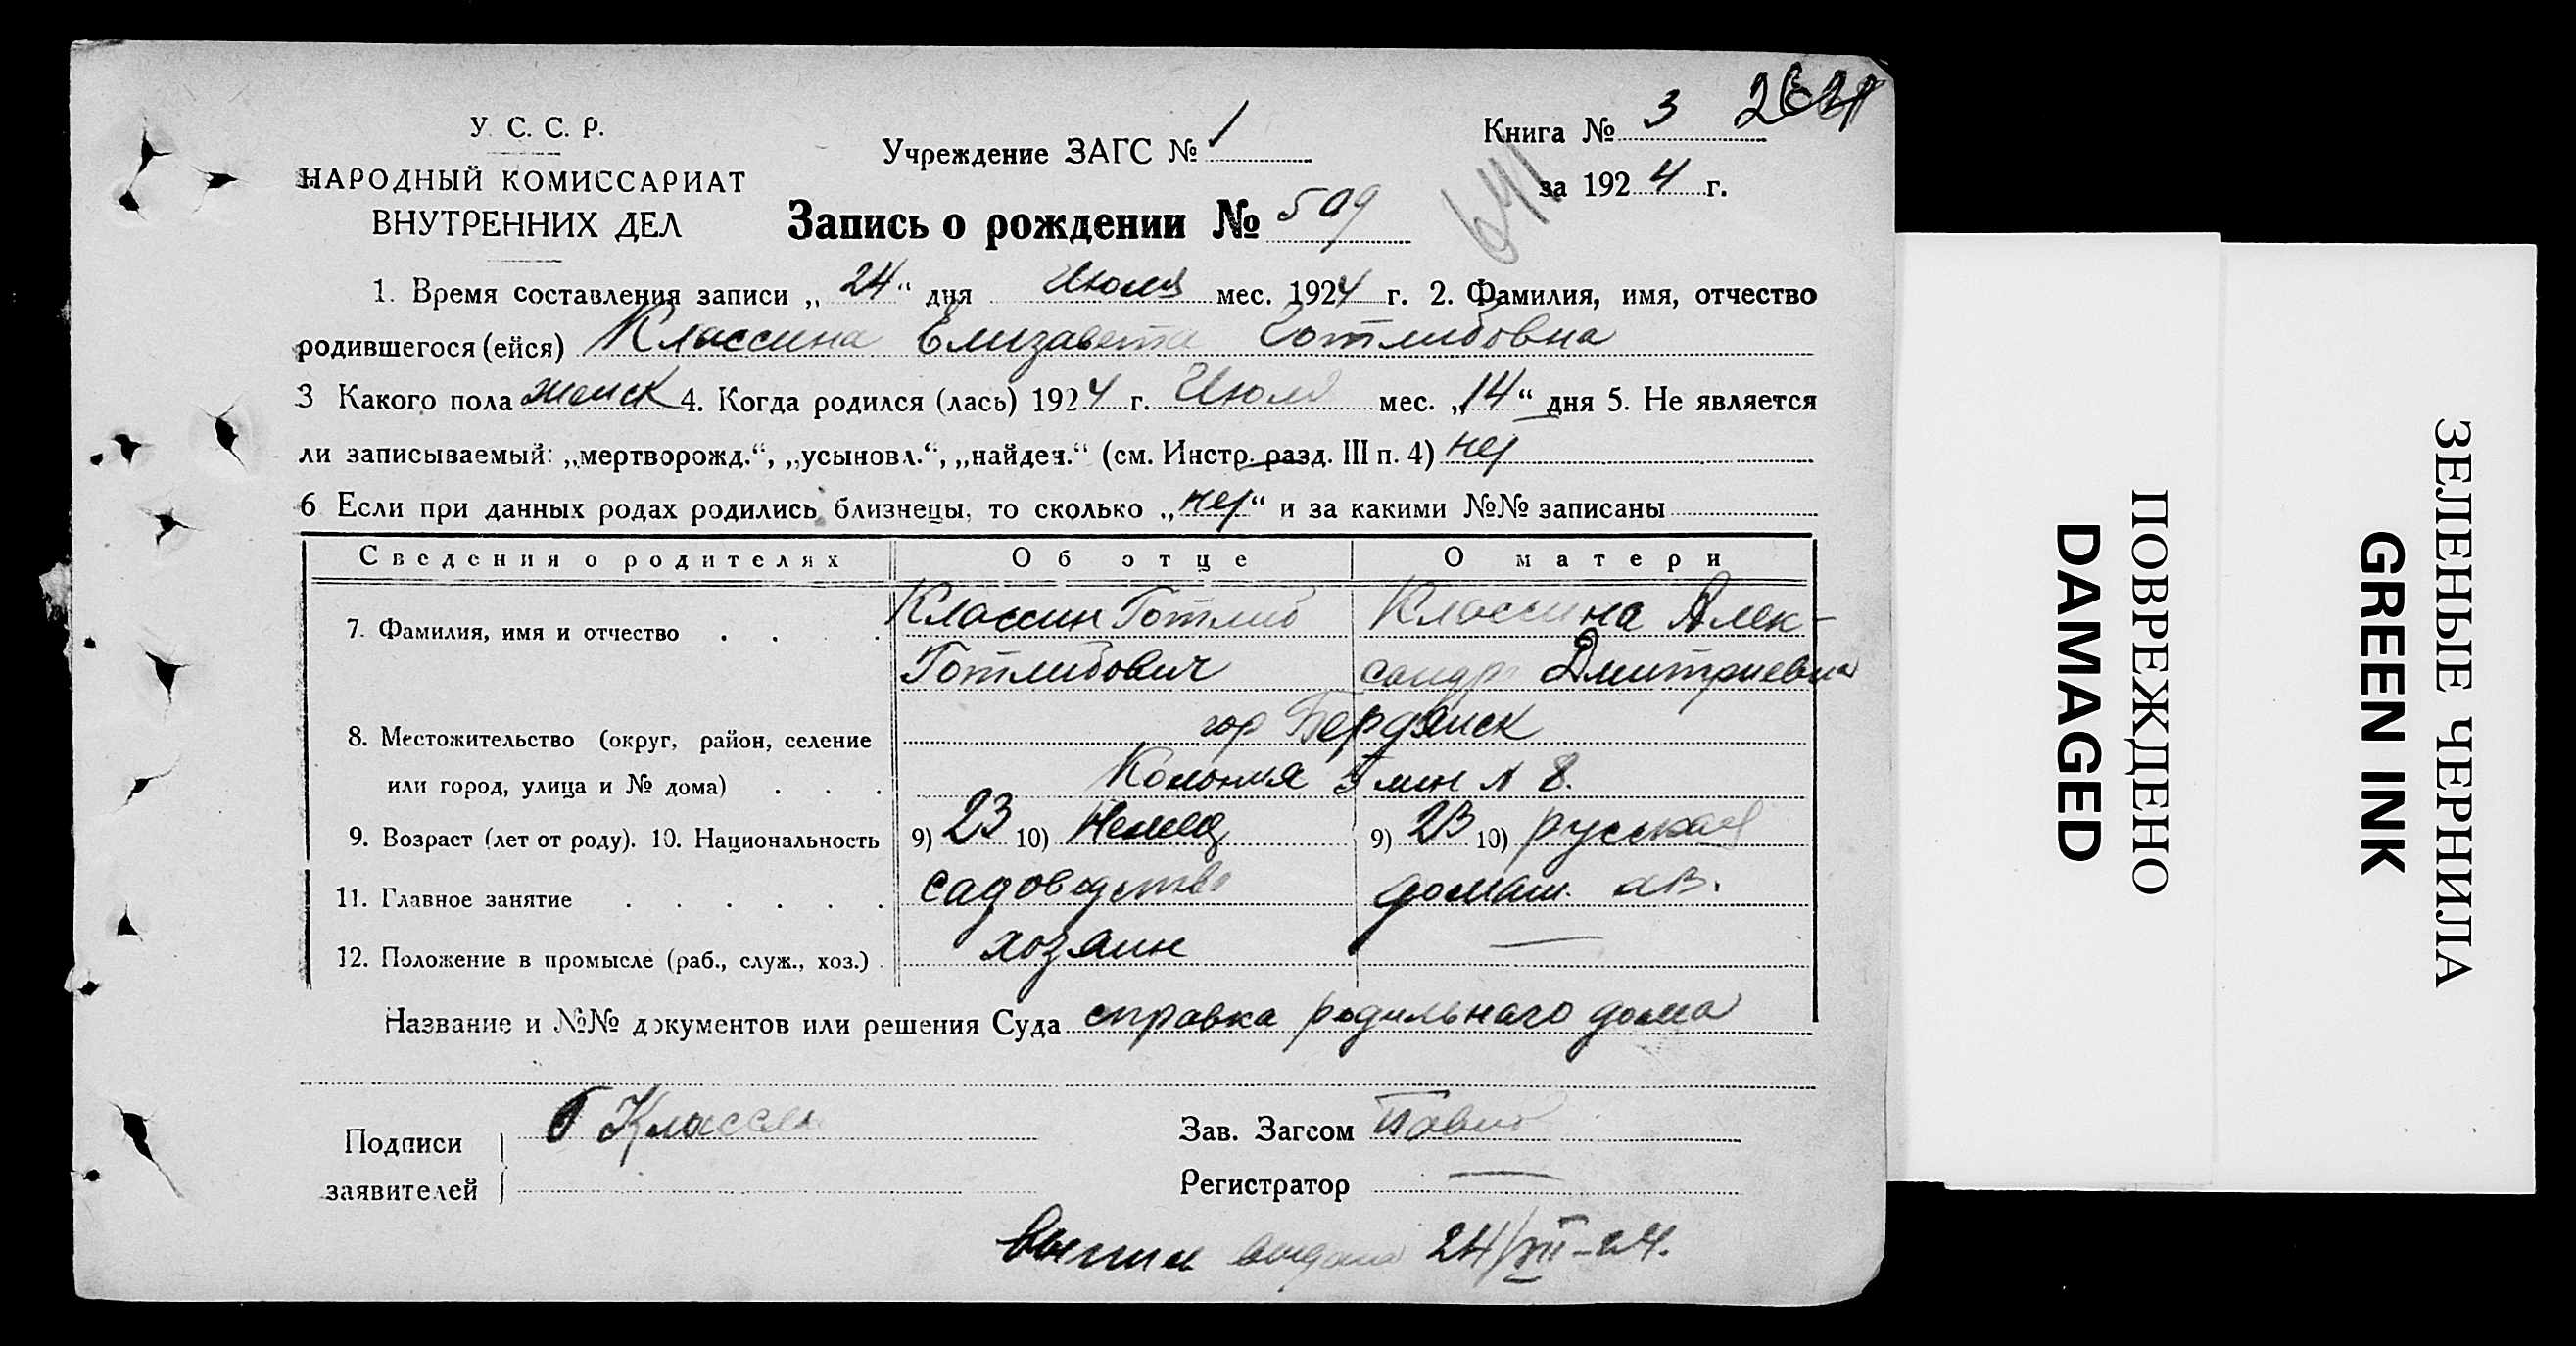 У. С. С. Р.
НАРОДНЫЙ КОМИССАРИАТ
ВНУТРЕННИХ ДЕЛ
Учреждение ЗАГС № 1
Книга № 3
за 1924 г.
641
Запись о рождении № 509
1. Время составления записи „24“ дня Июля мес. 1924 г. 2. Фамилия, имя, отчество
родившегося (ейся) Классина Елизавета Готлибовна
3 Какого пола женск 4. Когда родился (лась) 1924 г. Июля мес. „14“ дня 5. Не является
ли записываемый: „мертворожд.“, „усыновл.“, „найден.“ (см. Инстр. разд. III п. 4) нет
6 Если при данных родах родились близнецы, то сколько „нет“ и за какими №№ записаны
Сведения о родителях Об отце О матери
7. Фамилия, имя и отчество Классин Готлиб Классина Алек-
Готлибович сандра Дмитриевна
8. Местожительство (округ, район, селение гор Бердянск
или город, улица и № дома) Колония 8.
9. Возраст (лет от роду). 10. Национальность 9) 23 10) Немец 9) 23 10) русская
11. Главное занятие садоводство домаш.
12. Положение в промысле (раб., служ., хоз.) хозяин —
Название и №№ документов или решения Суда справка родильнаго дома
Подписи Г Классен Зав. Загсом
заявителей Регистратор —
выдана 24/VII-24.
ПОВРЕЖДЕНО
DAMAGED
ЗЕЛЕНЫЕ ЧЕРНИЛА
GREEN INK